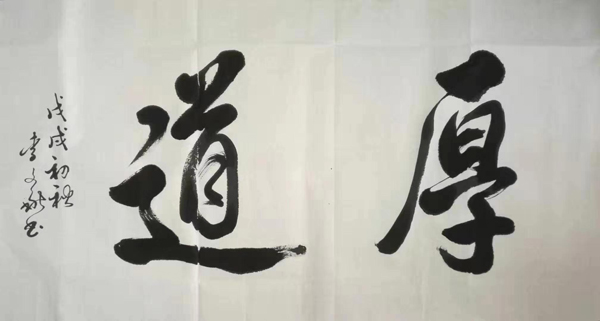 厚道
戊戌初秋
李文 书